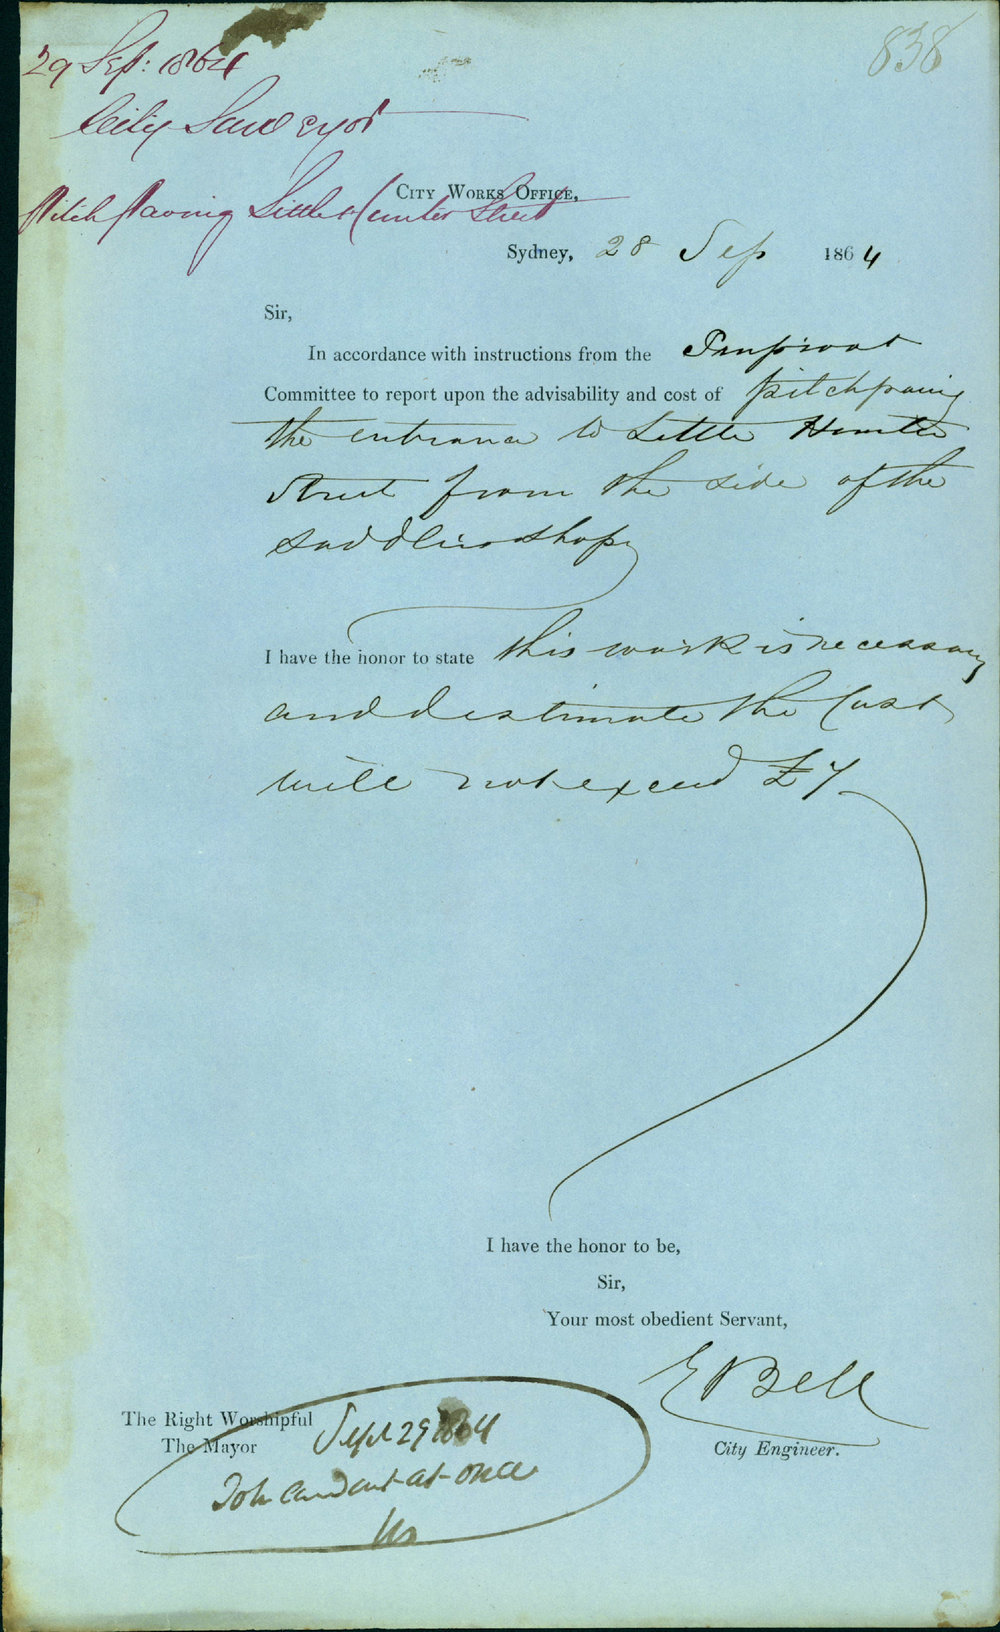 838
29 Sep: 1864
City Surveyor
Pitch paving Little Hunter Street
City Works Office,
Sydney, 28 Sep 1864
Sir,
In accordance with instructions from the
Committee to report upon the advisability and cost of pitchpaving
the entrance to Little Hunter
Street from the side of the
saddlers shop
I have the honor to state this work is necessary
and I estimate the Cost
will not exceed £7
I have the honor to be,
Sir,
Your most obedient Servant,
E Bell
City Engineer.
The Right Worshipful
The Mayor
Sept 29 1864
To be carried out at once